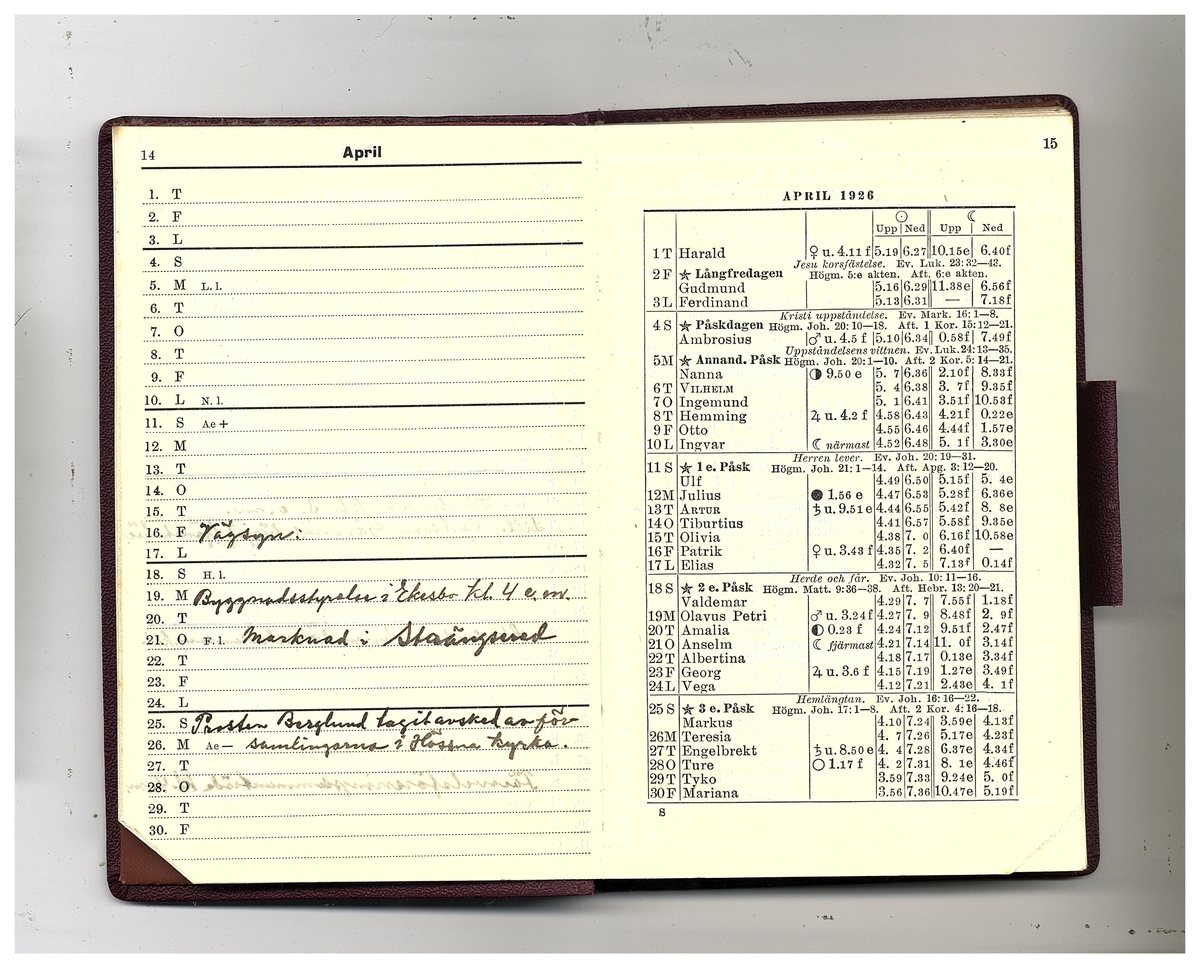 14 April
1. T
2. F
3. L
4. S
5. M L. l.
6. T
7. O
8. T
9. F
10. L N. l.
11. S Ae +
12. M
13. T
14. O
15. T
16. F Vägsyn:
17. L
18. S H. l.
19. M Byggnadsstyrelse i Ekesbo kl. 4 e. m.
20. T
21. O F. l. Marknad i Stoängsered
22. T
23. F
24. L
25. S Prosten Berglund tagit avsked av för-
26. M Ae — samlingarna i Hössna kyrka.
27. T
28. O
29. T
30. F
15
APRIL 1926
☉ ☾
Upp Ned Upp Ned
1 T Harald ♀ u. 4.11 f 5.19 6.27 10.15e 6.40f
Jesu korsfästelse. Ev. Luk. 23: 32—43.
2 F ★ Långfredagen Högm. 5:e akten. Aft. 6:e akten.
Gudmund 5.16 6.29 11.38e 6.56f
3 L Ferdinand 5.13 6.31 — 7.18f
Kristi uppståndelse. Ev. Mark. 16: 1—8.
4 S ★ Påskdagen Högm. Joh. 20: 10—18. Aft. 1 Kor. 15: 12—21.
Ambrosius ♂ u. 4.5 f 5.10 6.34 0.58f 7.49f
Uppståndelsens vittnen. Ev. Luk. 24: 13—35.
5 M ★ Annand. Påsk Högm. Joh. 20: 1—10. Aft. 2 Kor. 5: 14—21.
Nanna ◑ 9.50 e 5. 7 6.36 2.10f 8.33f
6 T VILHELM 5. 4 6.38 3. 7f 9.35f
7 O Ingemund 5. 1 6.41 3.51f 10.53f
8 T Hemming ♃ u. 4.2 f 4.58 6.43 4.21f 0.22e
9 F Otto 4.55 6.46 4.44f 1.57e
10 L Ingvar ☾ närmast 4.52 6.48 5. 1f 3.30e
Herren lever. Ev. Joh. 20: 19—31.
11 S ★ 1 e. Påsk Högm. Joh. 21: 1—14. Aft. Apg. 3: 12—20.
Ulf 4.49 6.50 5.15f 5. 4e
12 M Julius ● 1.56 e 4.47 6.53 5.28f 6.36e
13 T ARTUR ♄ u. 9.51 e 4.44 6.55 5.42f 8. 8e
14 O Tiburtius 4.41 6.57 5.58f 9.35e
15 T Olivia 4.38 7. 0 6.16f 10.58e
16 F Patrik ♀ u. 3.43 f 4.35 7. 2 6.40f —
17 L Elias 4.32 7. 5 7.13f 0.14f
Herde och får. Ev. Joh. 10: 11—16.
18 S ★ 2 e. Påsk Högm. Matt. 9: 36—38. Aft. Hebr. 13: 20—21.
Valdemar 4.29 7. 7 7.55f 1.18f
19 M Olavus Petri ♂ u. 3.24f 4.27 7. 9 8.48f 2. 9f
20 T Amalia ◐ 0.23 f 4.24 7.12 9.51f 2.47f
21 O Anselm ☾ fjärmast 4.21 7.14 11. 0f 3.14f
22 T Albertina 4.18 7.17 0.13e 3.34f
23 F Georg ♃ u. 3.6 f 4.15 7.19 1.27e 3.49f
24 L Vega 4.12 7.21 2.43e 4. 1f
Hemlängtan. Ev. Joh. 16: 16—22.
25 S ★ 3 e. Påsk Högm. Joh. 17: 1—8. Aft. 2 Kor. 4: 16—18.
Markus 4.10 7.24 3.59e 4.13f
26 M Teresia 4. 7 7.26 5.17e 4.23f
27 T Engelbrekt ♄ u. 8.50 e 4. 4 7.28 6.37e 4.34f
28 O Ture ○ 1.17 f 4. 2 7.31 8. 1e 4.46f
29 T Tyko 3.59 7.33 9.24e 5. 0f
30 F Mariana 3.56 7.36 10.47e 5.19f
8